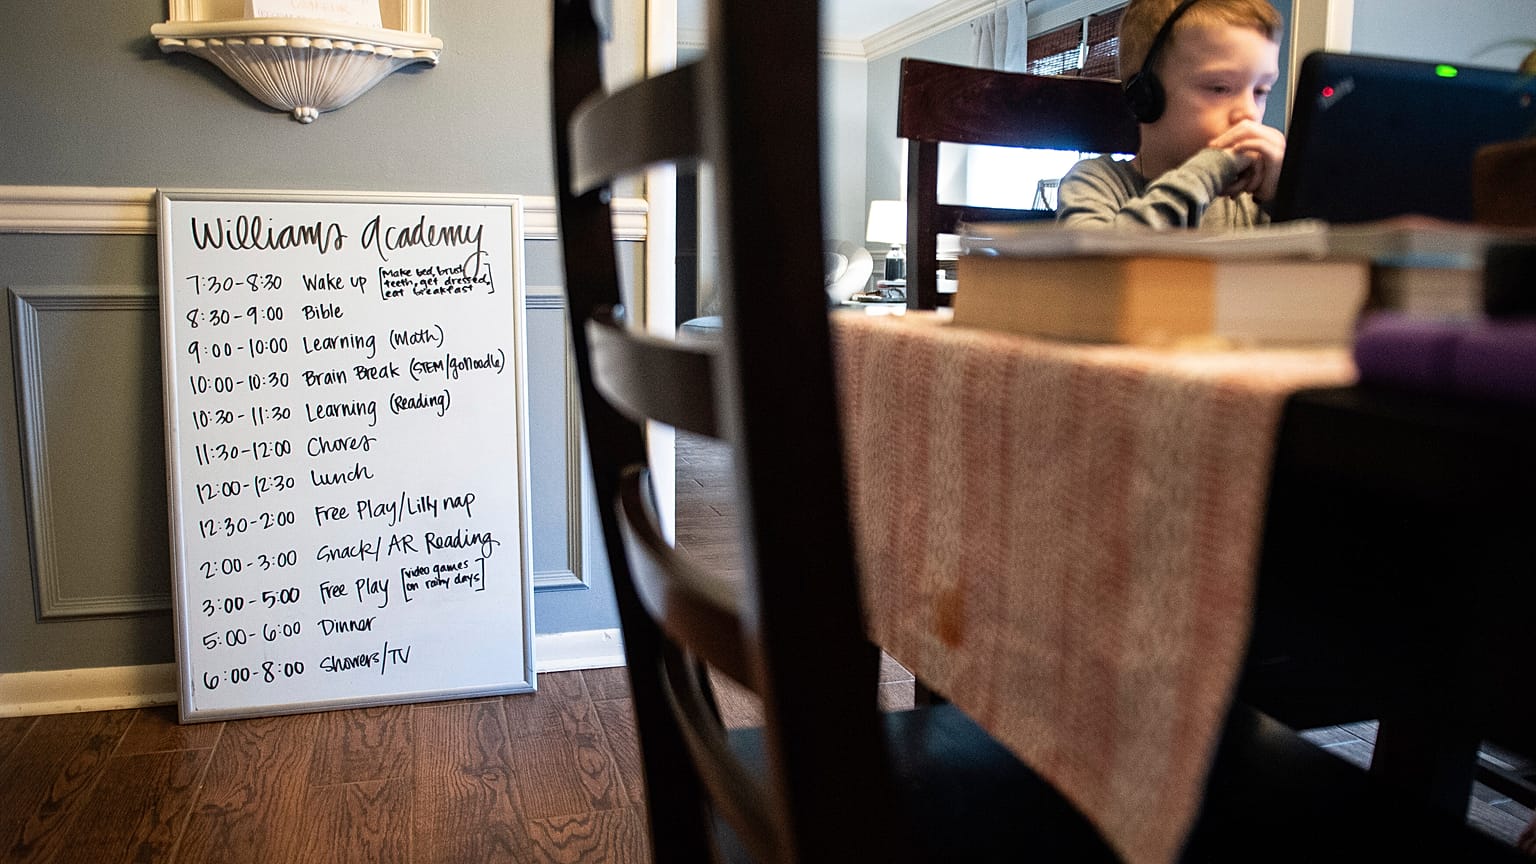 Williams Academy
7:30-8:30 Wake up [Make bed, brush
teeth, get dressed,
eat breakfast]
8:30-9:00 Bible
9:00-10:00 Learning (Math)
10:00-10:30 Brain Break (STEM/goNoodle)
10:30-11:30 Learning (Reading)
11:30-12:00 Chores
12:00-12:30 Lunch
12:30-2:00 Free Play/Lilly nap
2:00-3:00 Snack/AR Reading
3:00-5:00 Free Play [video games
on rainy days]
5:00-6:00 Dinner
6:00-8:00 Showers/TV